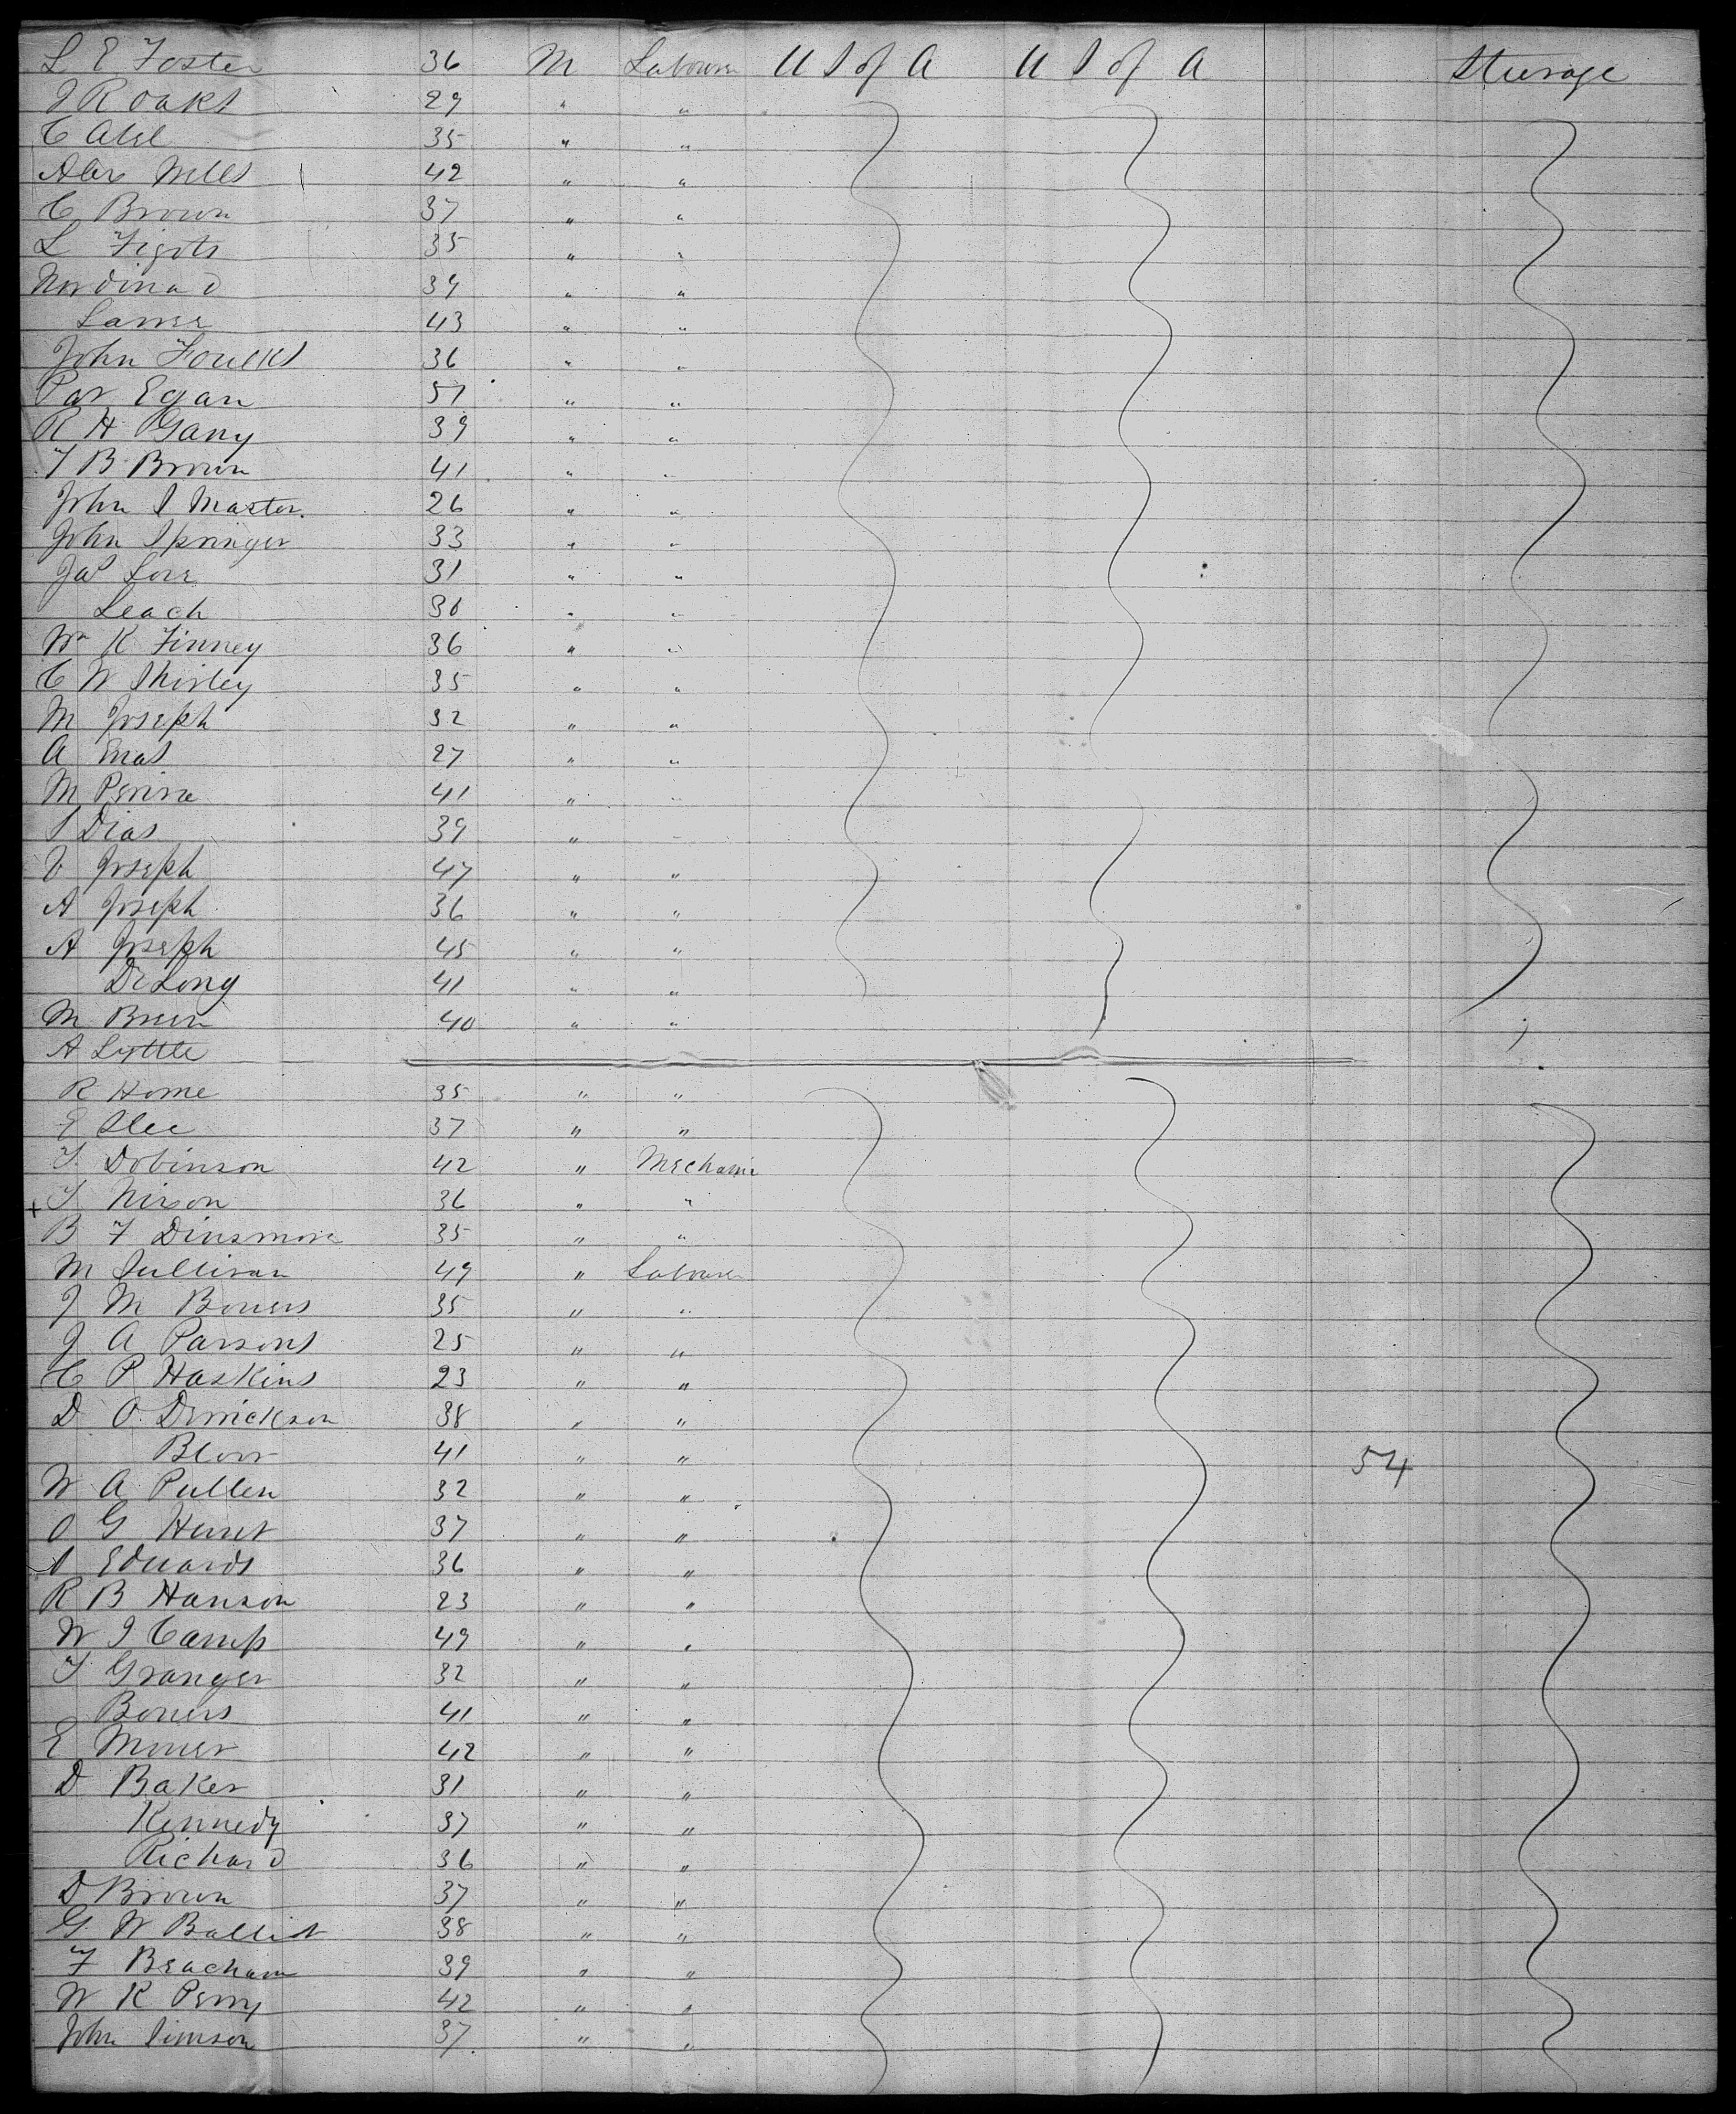 L E Foster 36 M Labourer U S of A U S of A Steerage
J R Oaks 29 " "
C Abel 35 " "
Alex Wells 42 " "
C Brown 37 " "
L Figots 35 " "
Nordinad 39 " "
Lamee 43 " "
John Foulks 36 " "
Pat Egan 57 " "
R H Gany 39 " "
T B Brown 41 " "
John S Master. 26 " "
John Springer 33 " "
Jas Love 31 " "
Leach 30 " "
Wm K Finney 36 " "
C W Shirley 35 " "
M Joseph 32 " "
A Enas 27 " "
M Perine 41 " "
S Dias 39 " "
V Joseph 47 " "
A Joseph 36 " "
A Joseph 45 " "
DeLong 41 " "
M Breen 40 " "
A Lyttle
R Home 35 " "
E Slee 37 " "
T Dobinson 42 " Mechanic
+ T Nixon 36 " "
B F Dinsmore 35 " "
M Sullivan 49 " Labourer
J M Bowers 35 " "
J A Parsons 25 " "
C P Haskins 23 " "
D O Derrickson 38 " "
Blow 41 " " 54
W A Pullen 32 " "
O G Hunt 37 " "
S Edwards 36 " "
R B Hanson 23 " "
W J Camp 49 " "
T Granger 32 " "
Bowers 41 " "
E Mower 42 " "
D Baker 31 " "
Kennedy 37 " "
Richard 36 " "
D Brown 37 " "
G W Ballist 38 " "
F Beacham 39 " "
W K Perry 42 " "
John Simson 37. " "